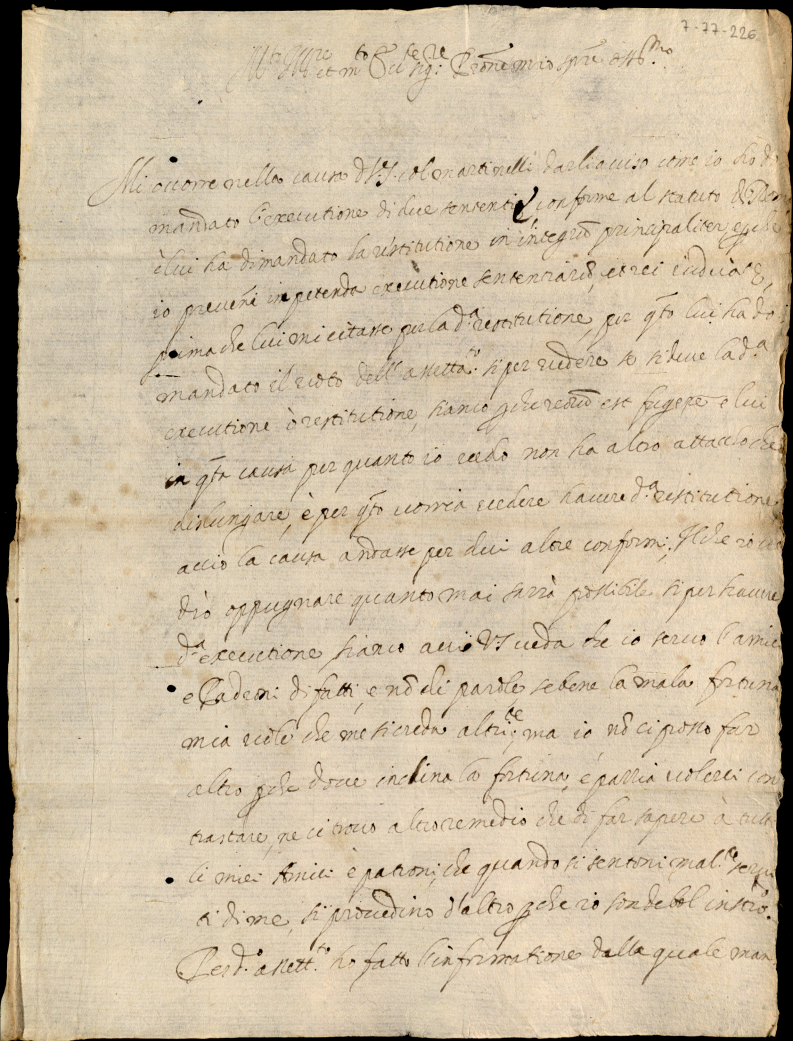 7-77-226
Mi occorre nella causa di V.S. col martinelli darli aviso come io hò di
mandato l'executione di due sententie conforme al statuto di Roma
è lui ha dimandato la restitutione in integrũ principaliter, e perche
io preveñi in petenda executione sententiarũ, et rei iudicatę,
prima che lui mi citasse per la d.ª restitutione, per q̃to lui ha di
mandato il voto dell'assetta.to si per vedere se si deve la d.ª
executione ò restitutione, si anco perche
in q̃ta causa per quanto io vedo non ha altro attacco che
di slungare, è per q̃to vorria vedere havere d.ª restitutione
acciò la causa andasse per dui altre conformi; Il che io ve
drò oppugnare quanto mai sarrà possibile si per havere
d.ª executione si anco acciò V.S. veda che io servo l'amici
e Padroni di fatti, e nõ di parole se bene la mala fortuna
mia vole che me si creda altr.te; ma io nõ ci posso far
altro perche dove inclina la fortuna, è pazzia volerci con
trastare, ne ci trovo altro remedio che di far sapere à tutti
li miei Amici è patroni, che quando si sentono mal.te servi
ti di me, si provedino d'altro perche io son debbol instro.
Per d.º assett.to ho fatto l'informatione dalla quale man